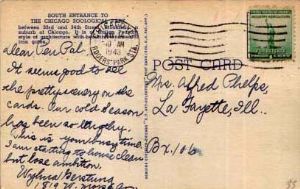 SOUTH ENTRANCE TO
THE CHICAGO ZOOLOGICAL PARK
between 33rd and 34th Streets,
suburb of Chicago. It is of Italian
style of architecture with
Dear Pen Pal
It seems good to see
the pretty scenery on the
cards. Our cold season
has been so lengthy.
This is your busy time.
I am starting to house clean
but lose ambition.
CHICAGO, ILL.
AM
1943
ROGERS PARK STA.
POST CARD
Mr. Alfred Phelps,
La Fayette, Ill.
Bx. 106